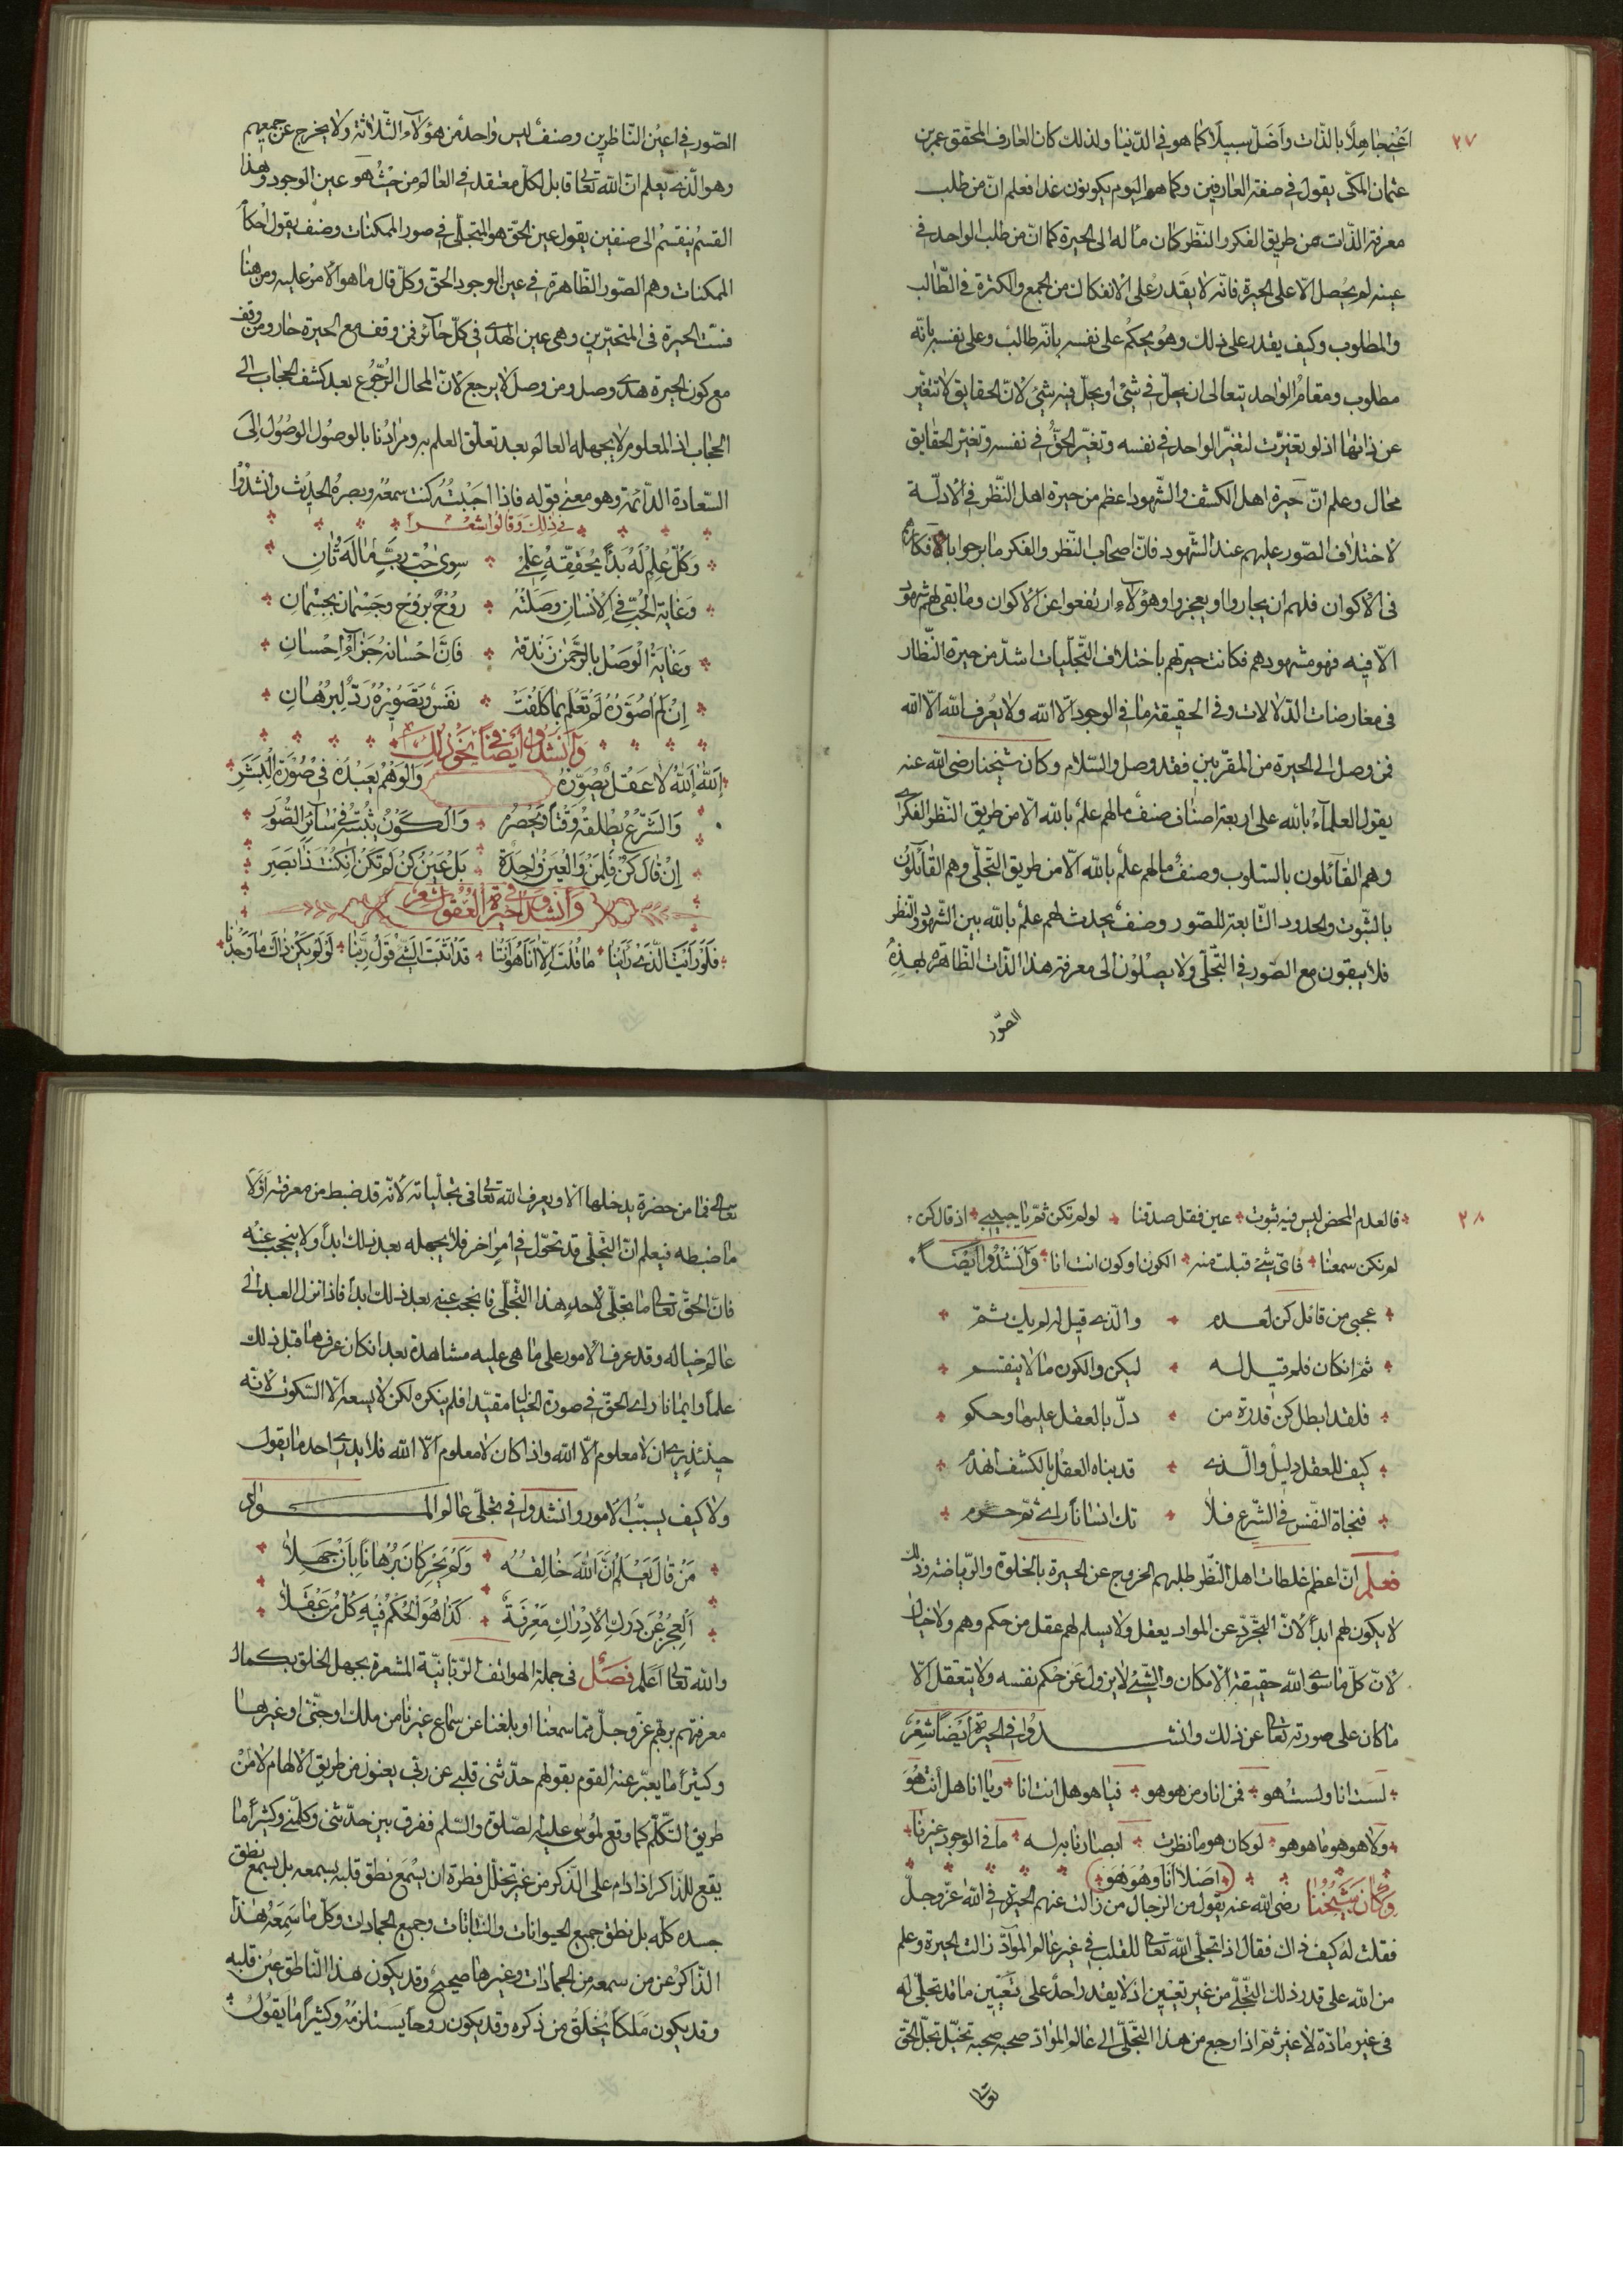 ٢٧
اعنى جاهلًا بالذّات وأضلّ سبيلًا كما هو فى الدّنيا ولذلك كان العارف المحقّق عمر بن
عثمان المكّى يقول فى صفة العارفين وكما هم اليوم يكونون غدا فعلم انّ من طلب
معرفة الذّات من طريق الفكر والنّظر كان مآله الى الحيرة كما انّ من طلب الواحد فى
عينه لم يحصل الّا على الحيرة فانّه لا يقدر على الانفكاك من الجمع والكثرة فى الطّالب
والمطلوب وكيف يقدر على ذلك وهو يحكم على نفسه بانّه طالب وعلى نفسه بانّه
مطلوب ومقام الواحد يتعالى ان يحلّ فى شئ او يحلّ فيه شئ لانّ الحقايق لا تتغيّر
عن ذاتها اذ لو تغيّرت لتغيّر الواحد فى نفسه وتغيّر الحقّ فى نفسه وتغيّر الحقايق
محال وعلم انّ حيرة اهل الكشف والشّهود اعظم من حيرة اهل النّظر فى الادلّة
لاختلاف الصّور عليهم عند الشّهود فانّ اصحاب النّظر والفكر ما برحوا بافكارهم
فى الاكوان فلهم ان يحاروا او يعجزوا وهؤلاء ارتفعوا عن الاكوان وما بقى لهم شهود
الّا فيه فهو مشهودهم فكانت حيرتهم باختلاف التّجلّيات اشدّ من حيرة النّظّار
فى معارضات الدّلالات وفى الحقيقة ما فى الوجود الّا الله ولا يعرف الله الّا الله
فمن وصل الى الحيرة من المقرّبين فقد وصل والسّلام وكان شيخنا رضى الله عنه
يقول العلماء بالله على اربعة اصناف صنف ما لهم علم بالله الّا من طريق النّظر الفكرى
وهم القآئلون بالسّلوب وصنف ما لهم علم بالله الّا من طريق التّجلّى وهم القآئلون
بالثّبوت والحدود التّابعة للصّور وصنف يحدث لهم علم بالله بين الشّهود والنّظر
فلا يبقون مع الصّور فى التّجلّى ولا يصلون الى معرفة هذا الذّات الظّاهرة بهذه
الصّور
الصّور فى اعين النّاظرين وصنف ليس واحد من هؤلاء الثّلاثة ولا يخرج عن جميعهم
وهو الّذى يعلم انّ الله تعالى قابل لكلّ معتقد فى العالم من حيث هو عين الوجود وهذا
القسم ينقسم الى صنفين يقول عين الحقّ هو المتجلّى فى صور الممكنات وصنف يقول احكام
الممكنات وهم الصّور الظّاهرة فى عين الوجود الحقّ وكلّ قال ما هو الامر عليه ومن هنا
فشت الحيرة فى المتحيّرين وهى عين الهدى فى كلّ حآئر فمن وقف مع الحيرة حار ومن وقف
مع كون الحيرة هدى وصل ومن وصل لا يرجع لانّ المحال الرّجوع بعد كشف الحجاب الى
الحجاب اذ المعلوم لا يجهله العالم بعد تعلّق العلم به ومرادنا بالوصول الوصول الى
السّعادة الدّآئمة وهو معنى قوله فاذا احببته كنت سمعه وبصره الحديث وانشدوا
فى ذلك وقالوا شعرا
وكلّ علم له بدأ يحقّقه علمى سوى حبّ ربّ ماله ثان
وغاية الحبّ فى الانسان وصلته روح بروح وجسمان بجسمان
وغاية الوصل بالرّحمن زندقة فانّ احسانه جزآء احسان
ان لم اصوّره لم تعلم بما كلفت نفس وتصويره ردّ لبرهان
وانشدوا ايضا فى نحو ذلك
الله الله لا عقل يصوّره والوهم يعبده فى صورة البشر
والشّرع يطلقه وقتا ويحصره والكون يثبته فى سآئر الصّور
ان قال كن فلمن والعين واحدة بل عين كن لم تكن ان كنت ذا بصر
وانشدوا فى حيرة العقول شعر
فلو رأيت الّذى رأينا ما قلت الّا انا هو انتا قد اثبت الشّئ قول ربّنا لو لم يكن ذاك ما وجدنا
٢٨
فالعدم المحض ليس فيه ثبوت عين فقل صدقنا لو لم تكن ثمّ يا حبيبى اذ قال كن
لم نكن سمعنا فاىّ شئ قبلت منه الكون او كون انت انا وانشدوا ايضا
عجبى من قائل كن لعدم والّذى قيل له لم يك ثمّ
ثمّ ان كان فلم قيل له ليكن والكون ما لا ينقسم
فلقد ابطل كن قدرة من دلّ بالعقل عليها وحكم
كيف للعقل دليل والّذى قد بناه العقل بالكشف انهدم
فنجاة النّفس فى الشّرع فلا تك انسانا راى ثمّ حرم
فعلم انّ اعظم غلطات اهل النّظر طلبهم الخروج عن الحيرة بالخلوة والرّياضة وذلك
لا يكون لهم ابدا لانّ التّجرّد عن المواد يعقل ولا يسلم لهم عقل من حكم وهم ولا خيال
لانّ كلّ ما سوى الله حقيقة الامكان والشّئ لا يزول عن حكم نفسه ولا يتعقّل الّا
ما كان على صورته تعالى عن ذلك وانشدوا فى الحيرة ايضا شعر
لست انا ولست هو فمن انا ومن هو هو فيا هو هل انت انا ويا انا هل انت هو
ولا هو هو ما هو هو لو كان هو ما نظرت ابصارنا به له ما فى الوجود غيرنا
اصلا انا وهو وهو
وكان شيخنا رضى الله عنه يقول من الرّجال من زالت عنهم الحيرة فى الله عزّ وجلّ
فقلت له كيف ذاك فقال اذا تجلّى الله تعالى للقلب فى غير عالم الموآدّ زالت الحيرة وعلم
من الله على قدر ذلك التّجلّى من غير تعيين اذ لا يقدر احد على تعيين ما قد تجلّى له
فى غير مادّة لا غير ثمّ اذا رجع من هذا التّجلّى الى عالم الموادّ صحبه صحبه تخيّل تجلّى الحقّ
تعالى
تعالى فما من حضرة يدخلها الّا ويعرف الله تعالى فى تجلّياته لانّه قد ضبط من معرفته اوّلا
ما ضبطه فيعلم انّ التّجلّى قد تحوّل فى امر اخر فلا يجهله بعد ذلك ابدا ولا ينحجب عنه
فانّ الحقّ تعالى ما تجلّى لاحد هذا التّجلّى فانحجب عنه بعد ذلك ابدا فاذا نزل العبد الى
عالم خياله وقد عرف الامور على ما هى عليه مشاهدة بعد ان كان عرفها قبل ذلك
علما وايمانا راى الحقّ فى صورة الخيال مقيّدا فلم ينكره لكن لا يسعه الّا السّكوت لانّه
حينئذ يرى ان لا معلوم الّا الله واذا كان لا معلوم الّا الله فلا يدرى احد ما يقول
ولا كيف ينسب الامور وانشدوا فى تجلّى عالم المواد
من قال يعلم انّ الله خالقه ولم يحر كان برهانا بان جهلا
العجز عن درك الادراك معرفة كذا هو الحكم فيه كلّ من عقلا
والله تعالى اعلم فصل فى جملة الهواتف الرّبّانيّة المشعرة بجهل الخلق بكمال
معرفتهم بربّهم عزّ وجلّ ممّا سمعنا او بلغنا عن سماع غيرنا من ملك او جنّى او غيرها
وكثيرا ما يعبّر عنه القوم بقولهم حدّثنى قلبى عن ربّى يعنون من طريق الالهام لا من
طريق التّكلّم كما وقع لموسى عليه الصّلوة والسّلم ففرق بين حدّثنى وكلّمنى وكثيرا ما
يقع للذّاكر اذا دام على الذّكر من غير تخلّل فطرة ان يسمع نطق قلبه بسمعه بل يسمع نطق
جسده كلّه بل نطق جميع الحيوانات والنّباتات وجميع الجمادات وكلّ ما سمعه هذا
الذّاكر عن من سمعه من الجمادات وغيرها صحيح وقد يكون هذا النّاطق عين قلبه
وقد يكون ملكا يخلق من ذكره وقد يكون روحا يستلزمه وكثيرا ما يقول